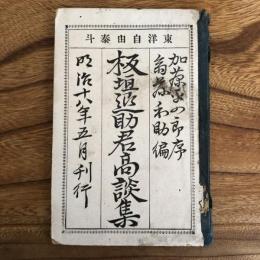 東洋自由泰斗
加藤平四郎序
斎藤和助編
板垣退助君高談集
明治十八年五月刊行